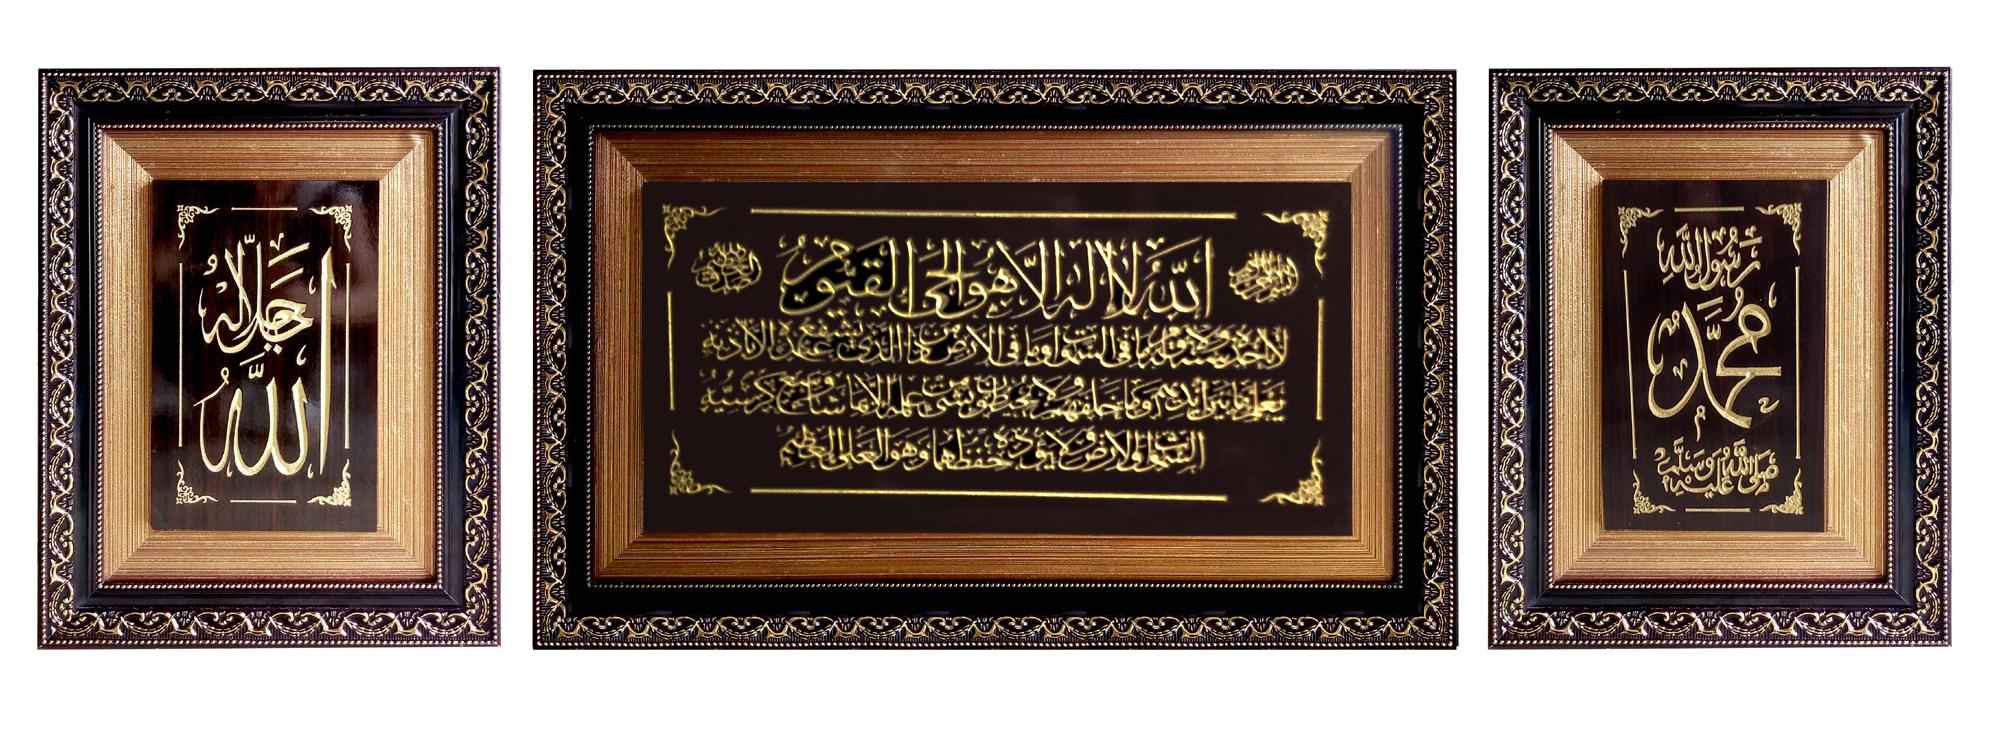 جل جلاله
الله
بسم الله الرحمن الرحيم
الله لا اله الا هو الحي القيوم
لا تاخذه سنة ولا نوم له ما في السموات وما في الارض من ذا الذي يشفع عنده الا باذنه
يعلم ما بين ايديهم وما خلفهم ولا يحيطون بشئ من علمه الا بما شاء وسع كرسيه
السموات والارض ولا يؤده حفظهما وهو العلي العظيم
رسول الله
محمد
صلى الله عليه وسلم